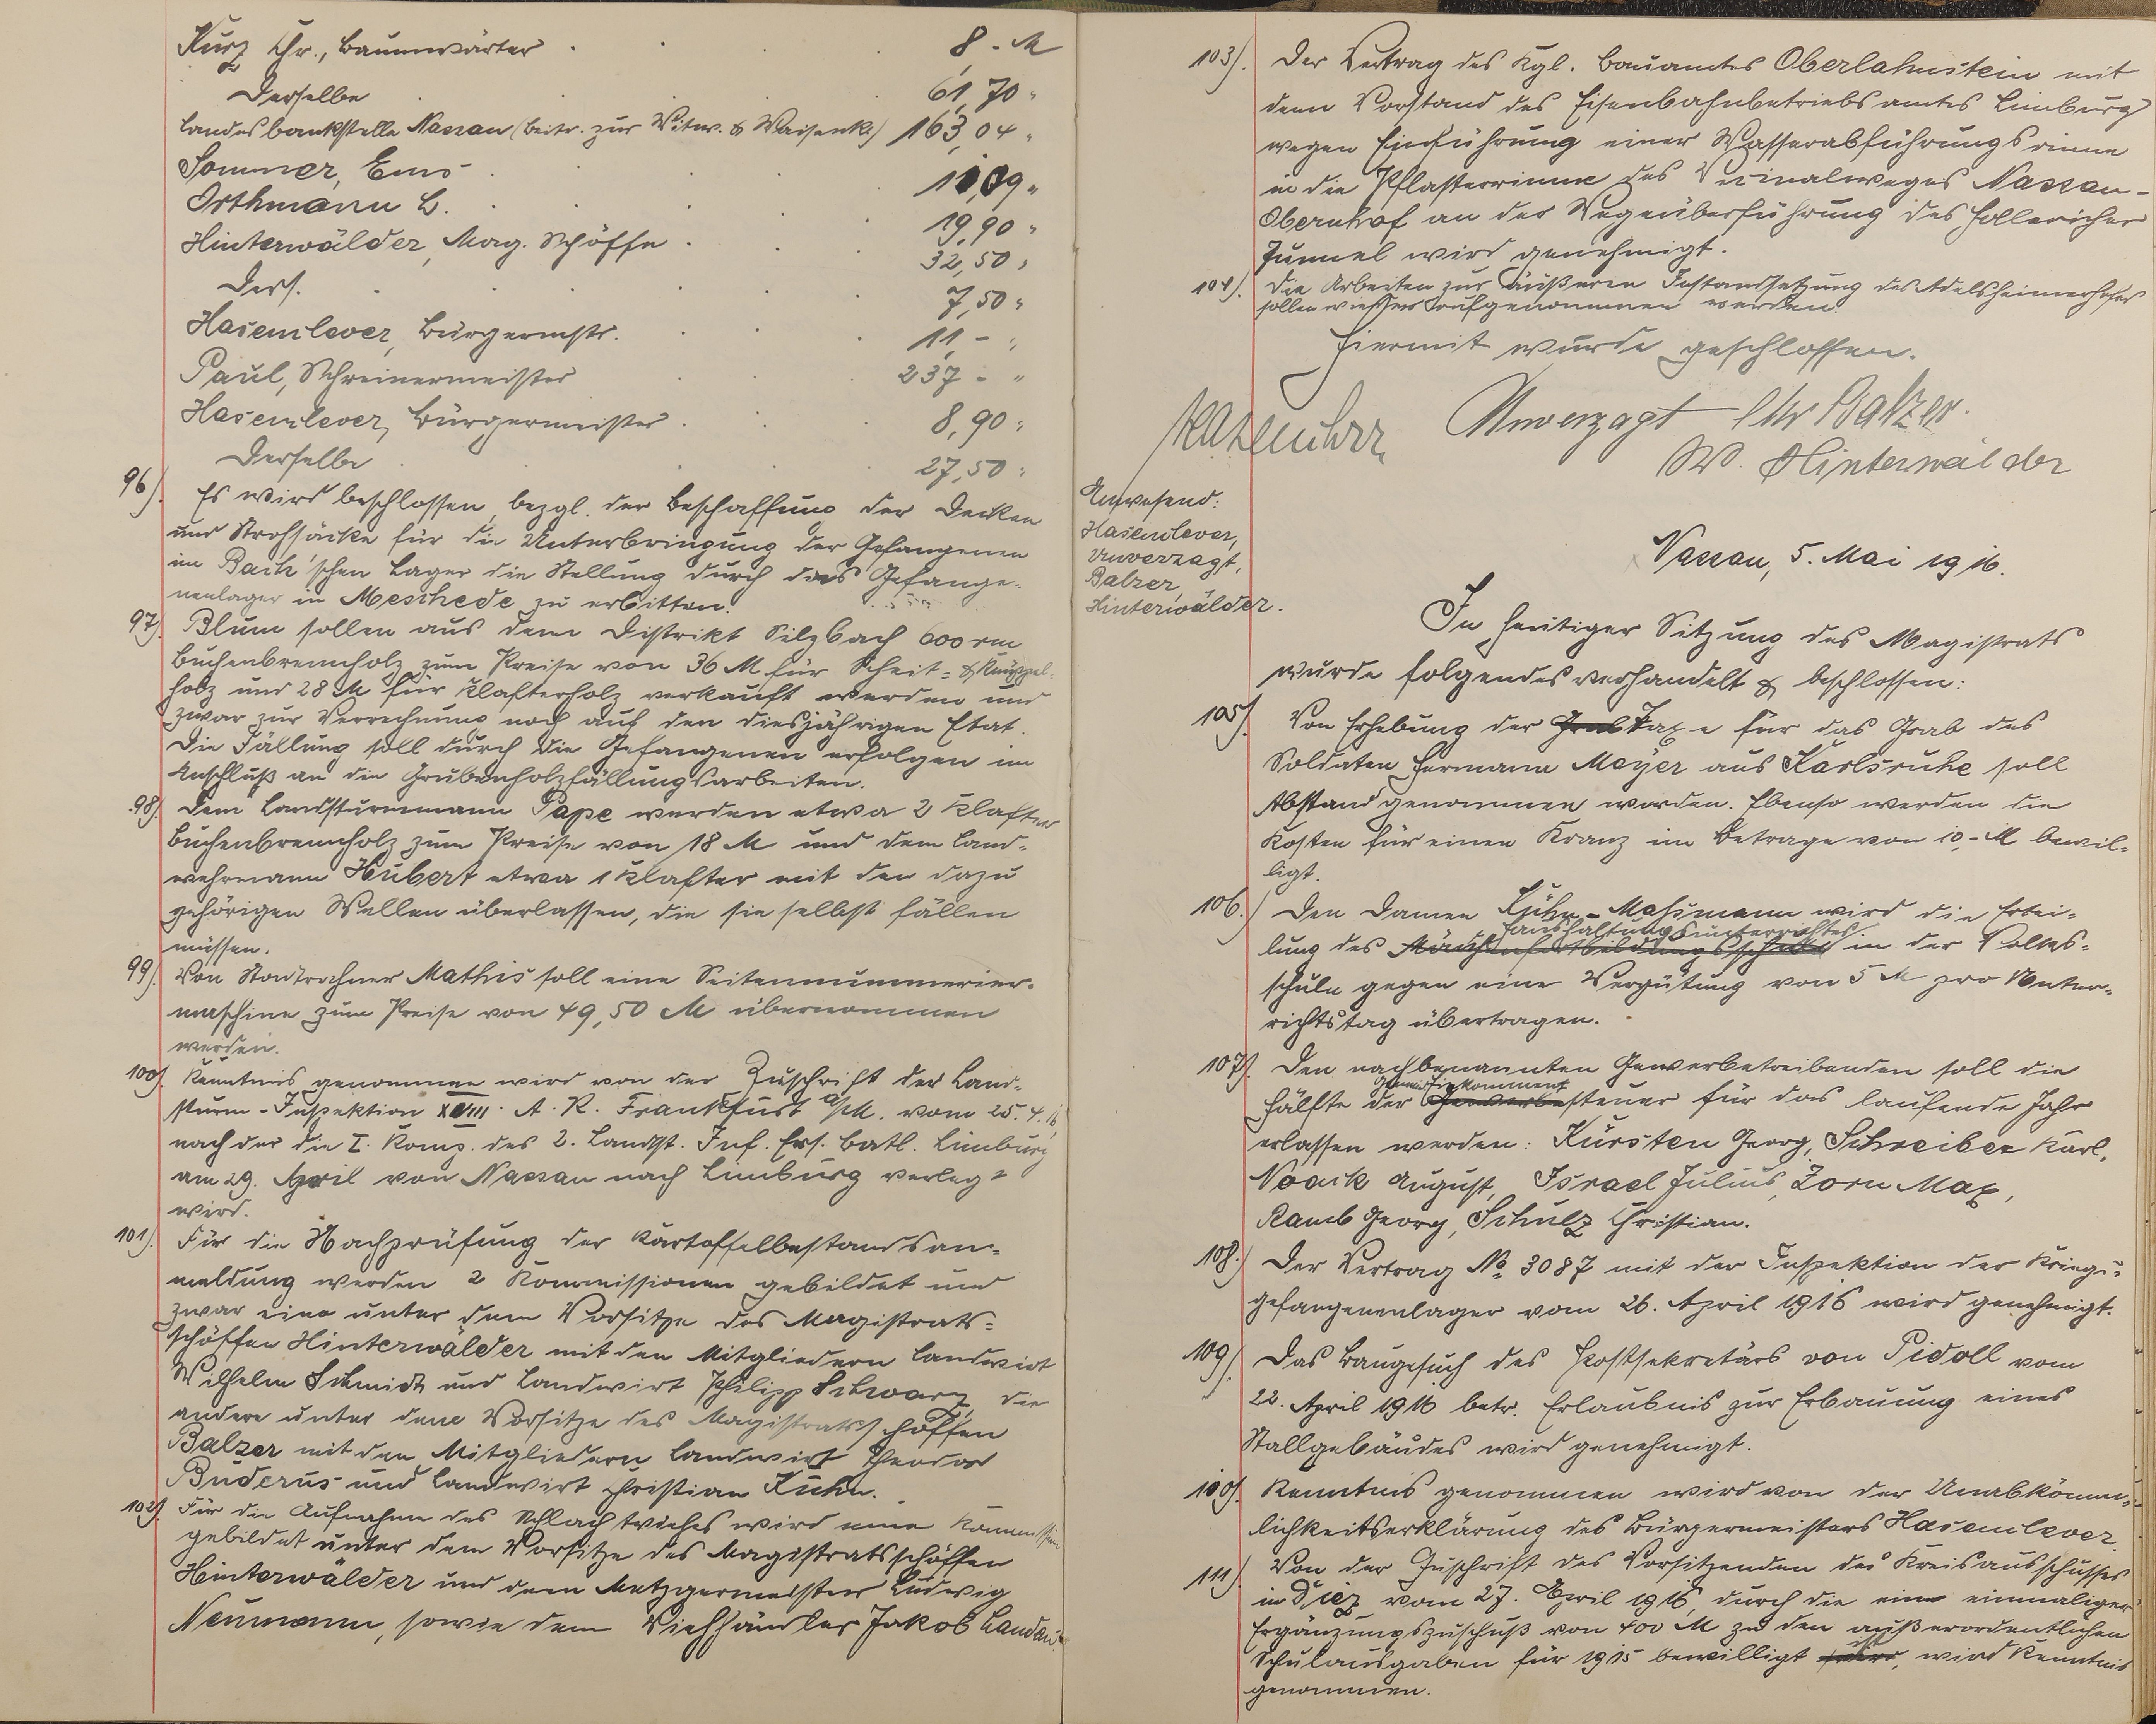 Kurz Chr., Baumwärter 8.- M
Derselbe 61,70 "
Landesbankstelle Nassau (Beitr. zur Witw. & Waisenk.) 163,04 "
Sommer, Ems
Orthmann L. 19,90 "
Hinterwälder, Mag. Schöffe 32,50 "
Ders. 7,50 "
Hasenclever, Bürgermstr. 11,- "
Paul, Schreinermeister 237 - "
Hasenclever, Bürgermeister 8,90 "
Derselbe 27,50 "
96). Es wird beschlossen, bezgl. der Beschaffung der Decken
und Strohsäcke für die Unterbringung der Gefangenen
im Bach'schen Lager die Stellung durch das Gefange-
nenlager in Meschede zu erbitten.
97). Blum sollen aus dem Distrikt Silzbach 600 rm
Buchenbrennholz zum Preise von 36 M für Scheit- & Knüppel-
holz und 28 M für Klafterholz verkauft werden und
zwar zur Verrechnung noch auf den diesjährigen Etat.
Die Fällung soll durch die Gefangenen erfolgen im
Anschluß an die Grubenholzfällungsarbeiten.
98). Dem Landsturmmann Pape werden etwa 2 Klafter
Buchenbrennholz zum Preise von 18 M und dem Land-
wehrmann Hubert etwa 1 Klafter mit den dazu
gehörigen Wellen überlassen, die sie selbst fällen
müssen.
99). Von Stadtrechner Mathis soll eine Seitennummerier-
maschine zum Preise von 49,50 M übernommen
werden.
100). Kenntnis genommen wird von der Zuschrift der Land-
sturm-Inspektion XVIII. A. K. Frankfurt a/M. vom 25.4.16,
nach der die I. Komp. des 2. Landst. Inf. Ers. Batl. Limburg
am 29. April von Nassau nach Limburg verlegt
wird.
101). Für die Nachprüfung der Kartoffelbestandsan-
meldung werden 2 Kommissionen gebildet und
zwar eine unter dem Vorsitze des Magistrats-
schöffen Hinterwälder mit den Mitgliedern Landwirt
Wilhelm Schmidt und Landwirt Philipp Schwarz, die
andere unter dem Vorsitze des Magistratsschöffen
Balzer mit den Mitgliedern Landwirt Theodor
Buderus und Landwirt Christian Kuhn.
102). Für die Aufnahme des Schlachtviehes wird eine Kommission
gebildet unter dem Vorsitze des Magistratsschöffen
Hinterwälder und dem Metzgermeister Ludwig
Neumann, sowie dem Viehhändler Jakob Landau.
103). Der Vertrag des Kgl. Bauamtes Oberlahnstein mit
dem Vorstand des Eisenbahnbetriebsamtes Limburg
wegen Einführung einer Wasserabführungsrinne
in die Pflasterrinne des Vicinalweges Nassau-
Obernhof an der Wegeüberführung des Hollericher
Tunnel wird genehmigt.
104). Die Arbeiten zur äußeren Instandsetzung des Adelsheimerhofes
sollen aufgenommen werden.
Hiermit wurde geschlossen.
Hasenclever Unverzagt Chr Balzer.
W. Hinterwälder
Anwesend:
Hasenclever,
Unverzagt,
Balzer,
Hinterwälder.
Nassau, 5. Mai 1916.
In heutiger Sitzung des Magistrats
wurde folgendes verhandelt & beschlossen:
105). Von Erhebung der Grab Taxe für das Grab des
Soldaten Hermann Meyer aus Karlsruhe soll
Abstand genommen werden. Ebenso werden die
Kosten für einen Kranz im Betrage von 10,- M bewil-
ligt.
106.) Den Damen Kühn-Massmann wird die Ertei-
Haushaltungsunterrichtes
lung des Mädchenfortbildungsschule in der Volks-
schule gegen eine Vergütung von 5 M pro Unter-
richtstag übertragen.
107). Den nachbenannten Gewerbetreibenden soll die
Gemeindeeinkommen
Hälfte der Gewerbesteuer für das laufende Jahr
erlassen werden: Kürsten Georg, Schreiber Karl,
Noack August, Israel Julius, Zorn Max,
Ramb Georg, Schulz Christian.
108.) Der Vertrag No. 3087 mit der Inspektion der Kriegs-
gefangenenlager vom 26. April 1916 wird genehmigt.
109). Das Baugesuch des Postsekretärs von Pidoll vom
22. April 1916 betr. Erlaubnis zur Erbauung eines
Stallgebäudes wird genehmigt.
110). Kenntnis genommen wird von der Unabkömm-
lichkeitserklärung des Bürgermeisters Hasenclever.
111). Von der Zuschrift des Vorsitzenden des Kreisausschusses
in Diez vom 27. April 1916, durch die ein einmaliger
Ergänzungszuschuß von 400 M zu den außerordentlichen
ist
Schulausgaben für 1915 bewilligt wird, wird Kenntnis
genommen.